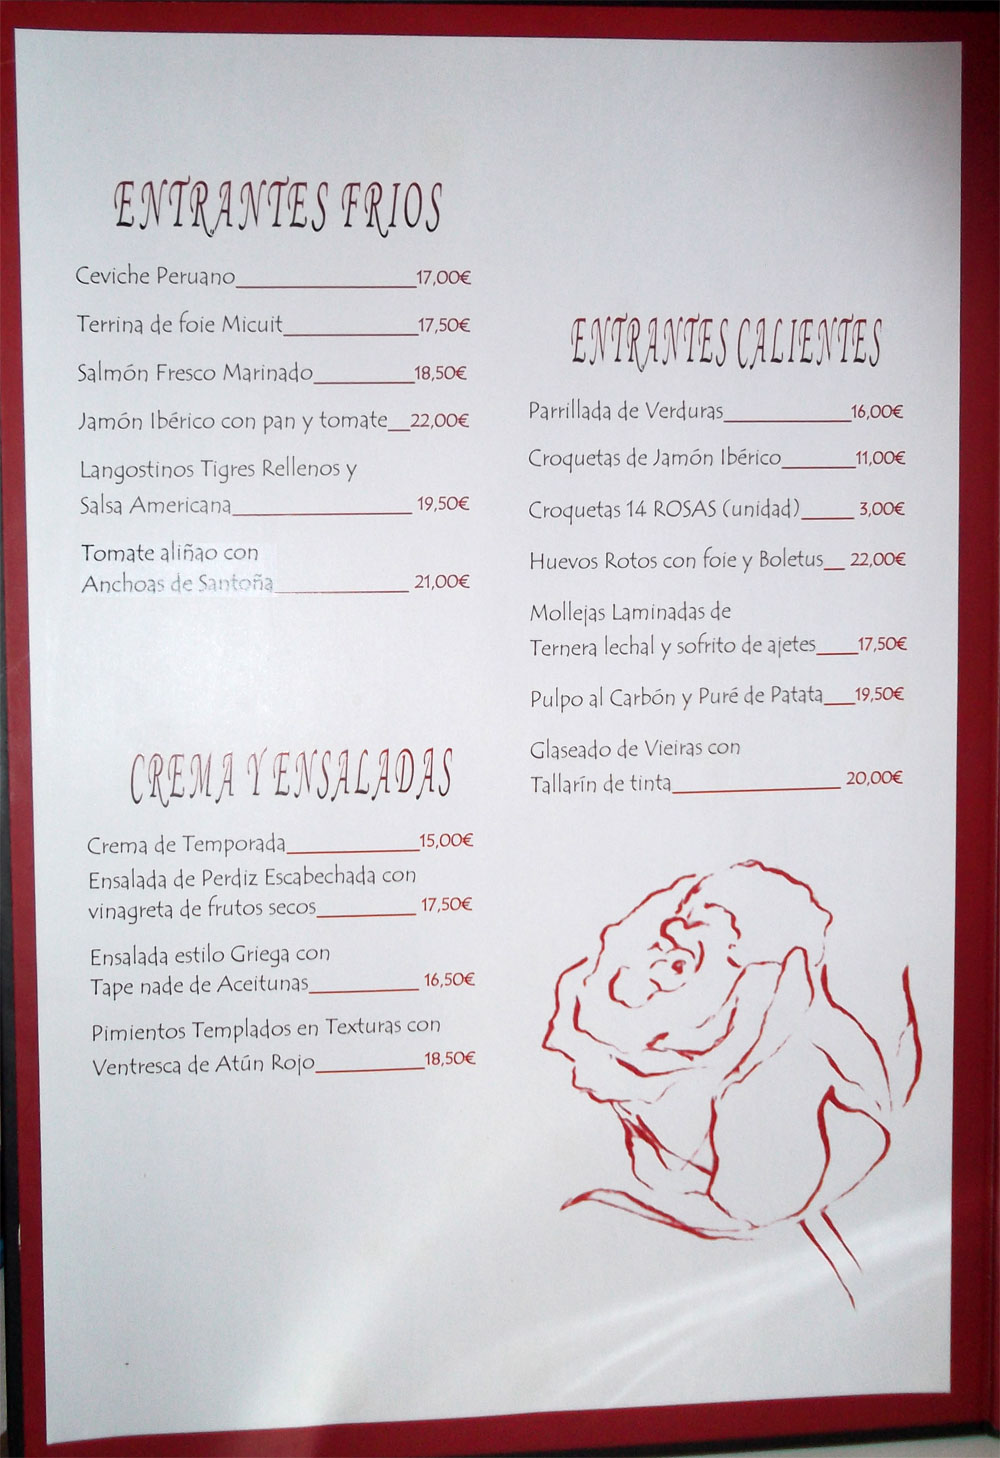 ENTRANTES FRIOS
Ceviche Peruano 17,00€
Terrina de foie Micuit 17,50€
Salmón Fresco Marinado 18,50€
Jamón Ibérico con pan y tomate 22,00€
Langostinos Tigres Rellenos y
Salsa Americana 19,50€
Tomate aliñao con
Anchoas de Santoña 21,00€
CREMA Y ENSALADAS
Crema de Temporada 15,00€
Ensalada de Perdiz Escabechada con
vinagreta de frutos secos 17,50€
Ensalada estilo Griega con
Tape nade de Aceitunas 16,50€
Pimientos Templados en Texturas con
Ventresca de Atún Rojo 18,50€
ENTRANTES CALIENTES
Parrillada de Verduras 16,00€
Croquetas de Jamón Ibérico 11,00€
Croquetas 14 ROSAS (unidad) 3,00€
Huevos Rotos con foie y Boletus 22,00€
Mollejas Laminadas de
Ternera lechal y sofrito de ajetes 17,50€
Pulpo al Carbón y Puré de Patata 19,50€
Glaseado de Vieiras con
Tallarín de tinta 20,00€